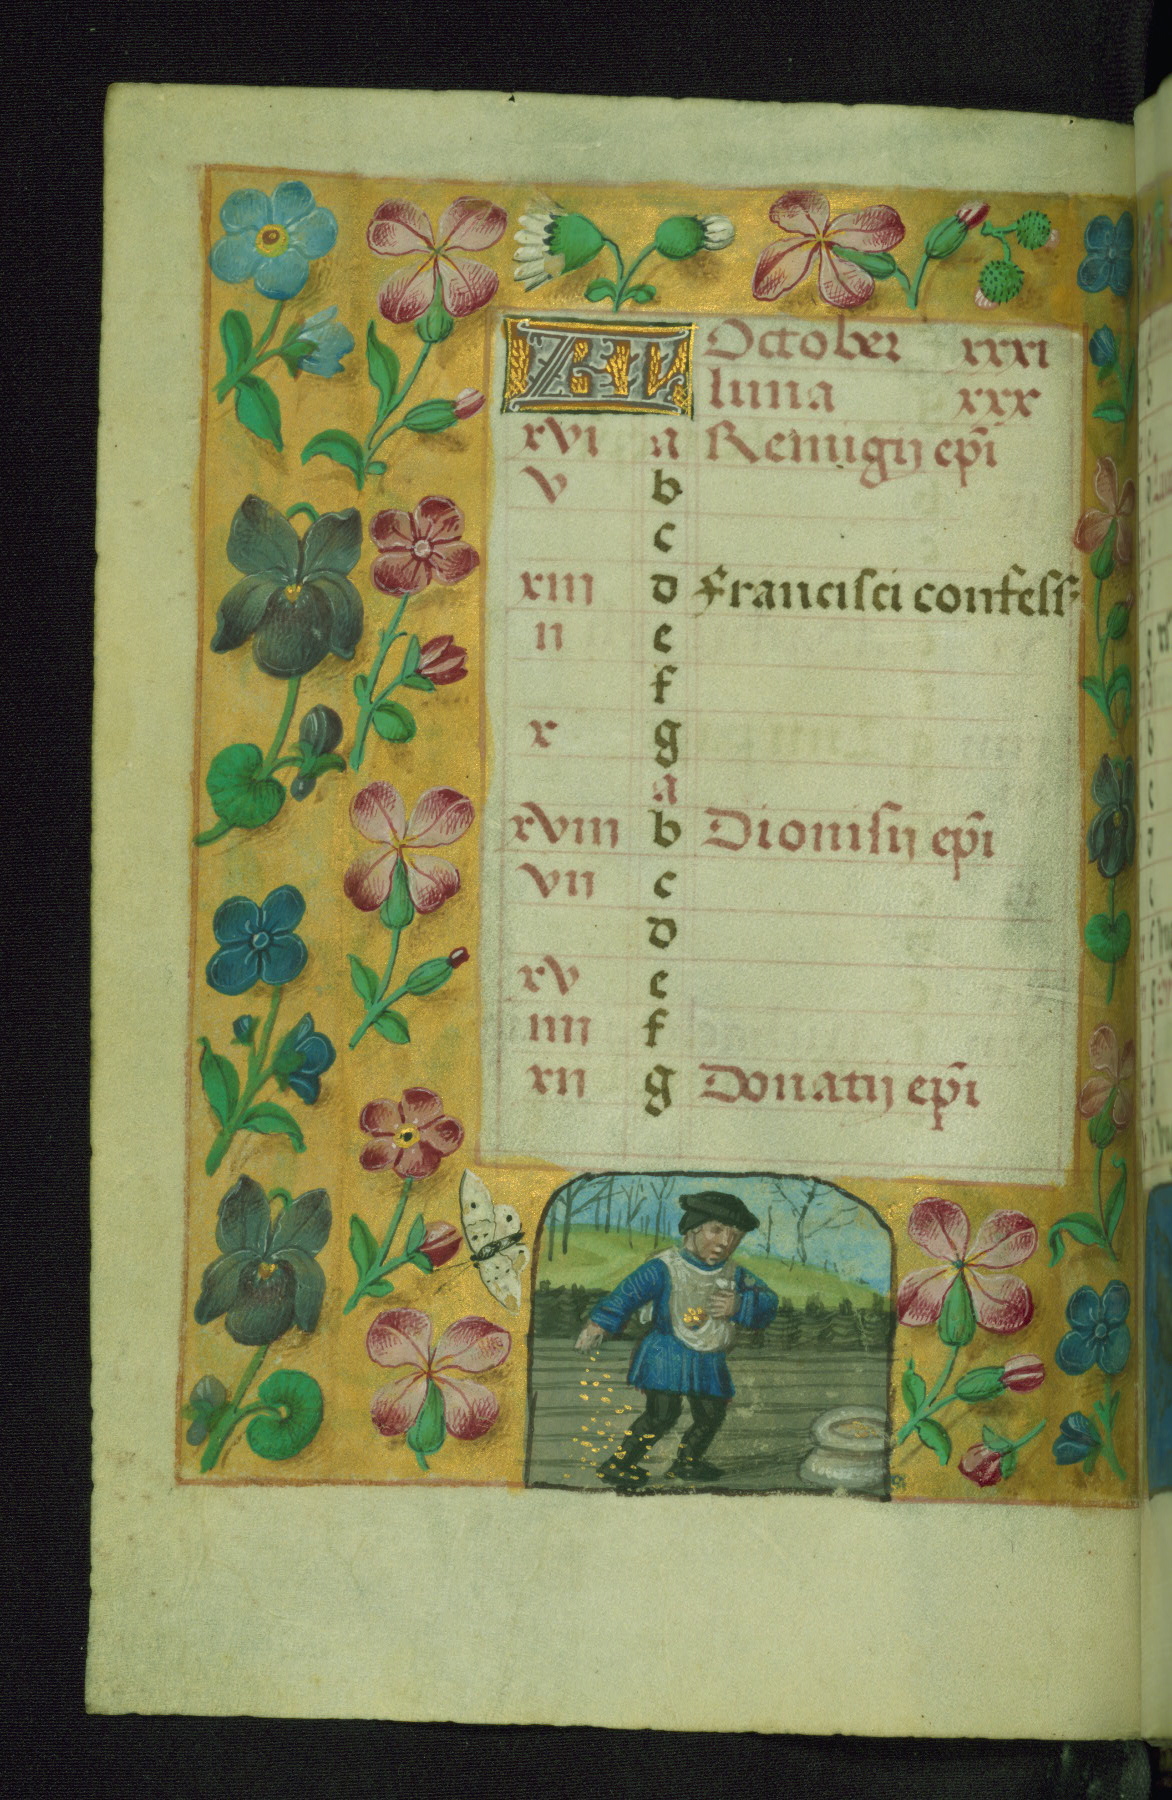 KL October xxxi
luna xxx
xvi a Remigij ep̄i
v b
c
xiii d Francisci confess
ii e
f
x g
a
xviii b Dionisij ep̄i
vii c
d
xv e
iiii f
xii g Donatij ep̄i